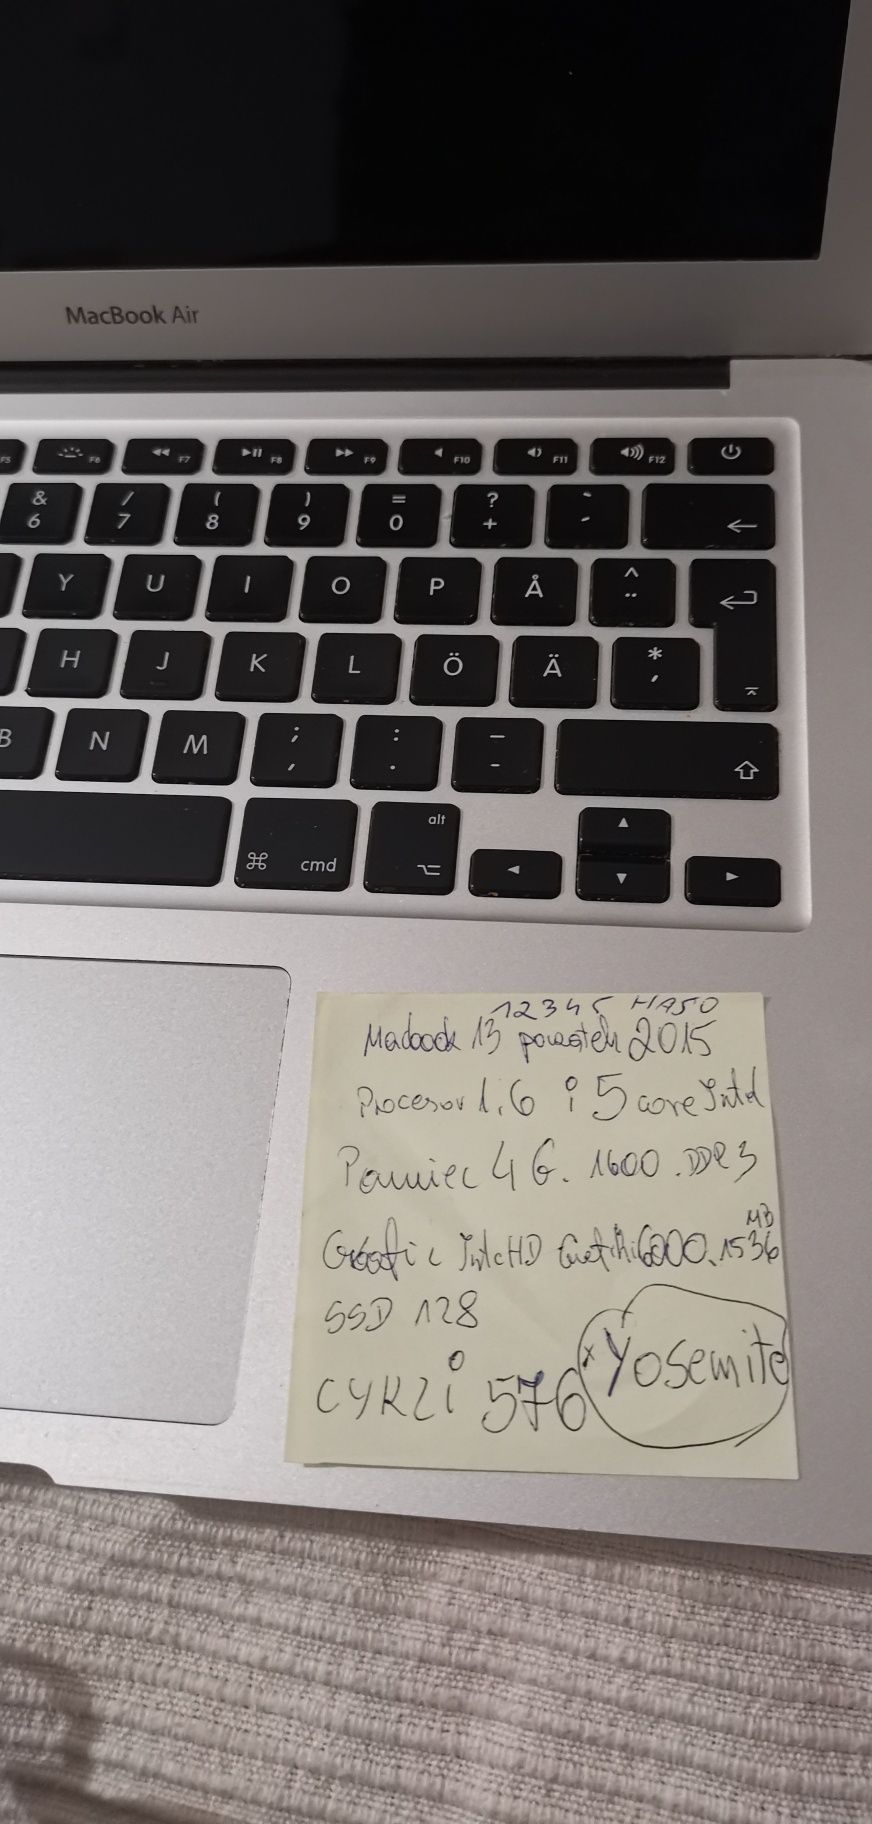 MacBook Air
F5 F6 F7 F8 F9 F10 F11 F12
& / ( ) = ? `
6 7 8 9 0 + ´
Y U I O P Å ^ ¨
H J K L Ö Ä * '
B N M ; , : . _ -
alt
⌘ cmd ⌥
12345 HASO
Macbook 13 początek 2015
Procesor 1,6 i5 core Intel
Pamiec 4 G. 1600. DDR3
MB
Intel HD 6000. 1536
SSD 128
CYKLi 576 x Yosemite